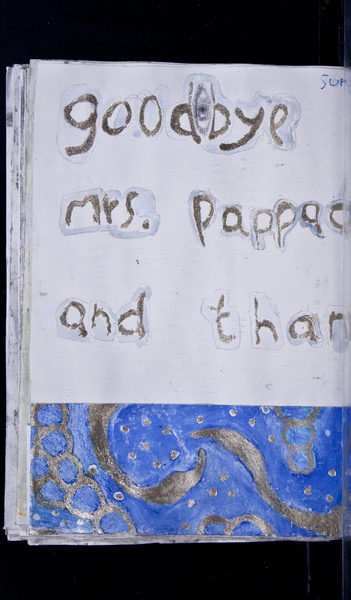 goodbye
mrs. pappac
and than